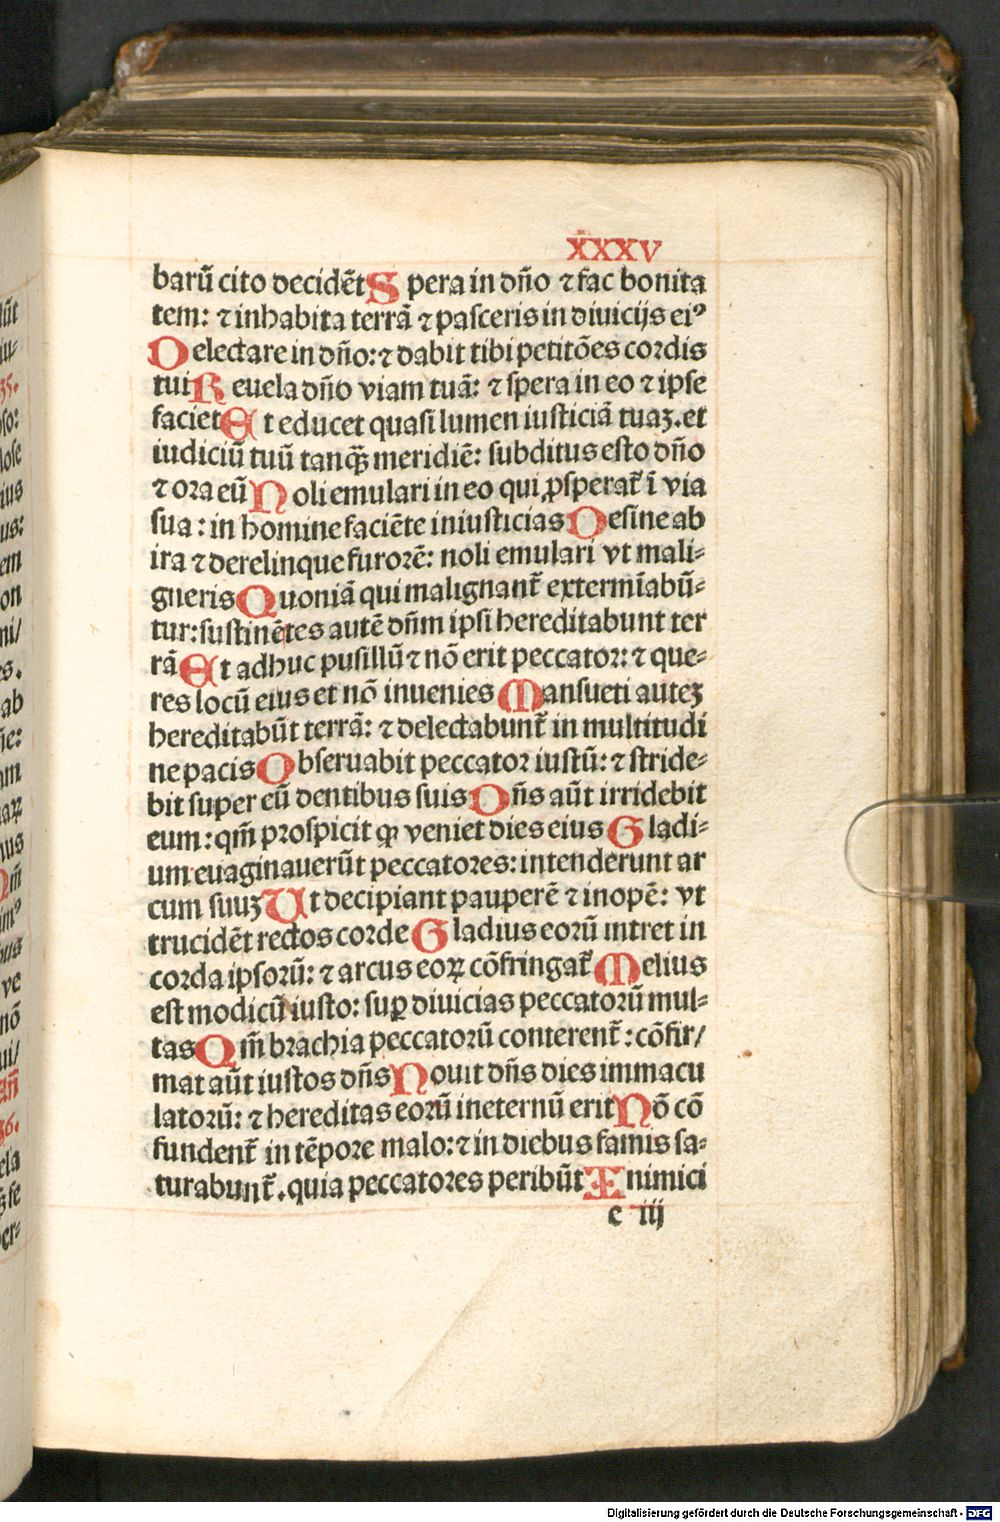 XXXV
barū cito decidēt Spera in dño ⁊ fac bonita
tem: ⁊ inhabita terrā ⁊ pasceris in diuicijs eiꝰ
Delectare in dño: ⁊ dabit tibi petitōes cordis
tui Reuela dño viam tuā: ⁊ spera in eo ⁊ ipse
faciet Et educet quasi lumen iusticiā tuaꝫ. et
iudiciū tuū tanq̃ꝫ meridiē: subditus esto dño
⁊ ora eū Noli emulari in eo qui ꝓsperat̃ ī via
sua: in homine faciēte iniusticias Desine ab
ira ⁊ derelinque furorē: noli emulari vt mali-
gneris Quoniā qui malignant̃ extermīabū-
tur: sustinētes autē dñm ipsi hereditabunt ter
rā Et adhuc pusillū ⁊ nō erit peccator: ⁊ que-
res locū eius et nō inuenies Mansueti auteꝫ
hereditabūt terrā: ⁊ delectabunt̃ in multitudi
ne pacis Obseruabit peccator iustū: ⁊ stride-
bit super eū dentibus suis Dñs aūt irridebit
eum: qm̄ prospicit ꝙ veniet dies eius Gladi-
um euaginauerūt peccatores: intenderunt ar
cum suuꝫ Ut decipiant pauperē ⁊ inopē: vt
trucidēt rectos corde Gladius eorū intret in
corda ipsorū: ⁊ arcus eoꝝ cōfringat̃ Melius
est modicū iusto: suꝑ diuicias peccatorū mul-
tas Qm̄ brachia peccatorū conterent̃: cōfir/
mat aūt iustos dñs Nouit dñs dies immacu
latorū: ⁊ hereditas eorū in eternū erit Nō cō
fundent̃ in tēpore malo: ⁊ in diebus famis sa-
turabunt̃. quia peccatores peribūt Inimici
e iij
Digitalisierung gefördert durch die Deutsche Forschungsgemeinschaft - DFG